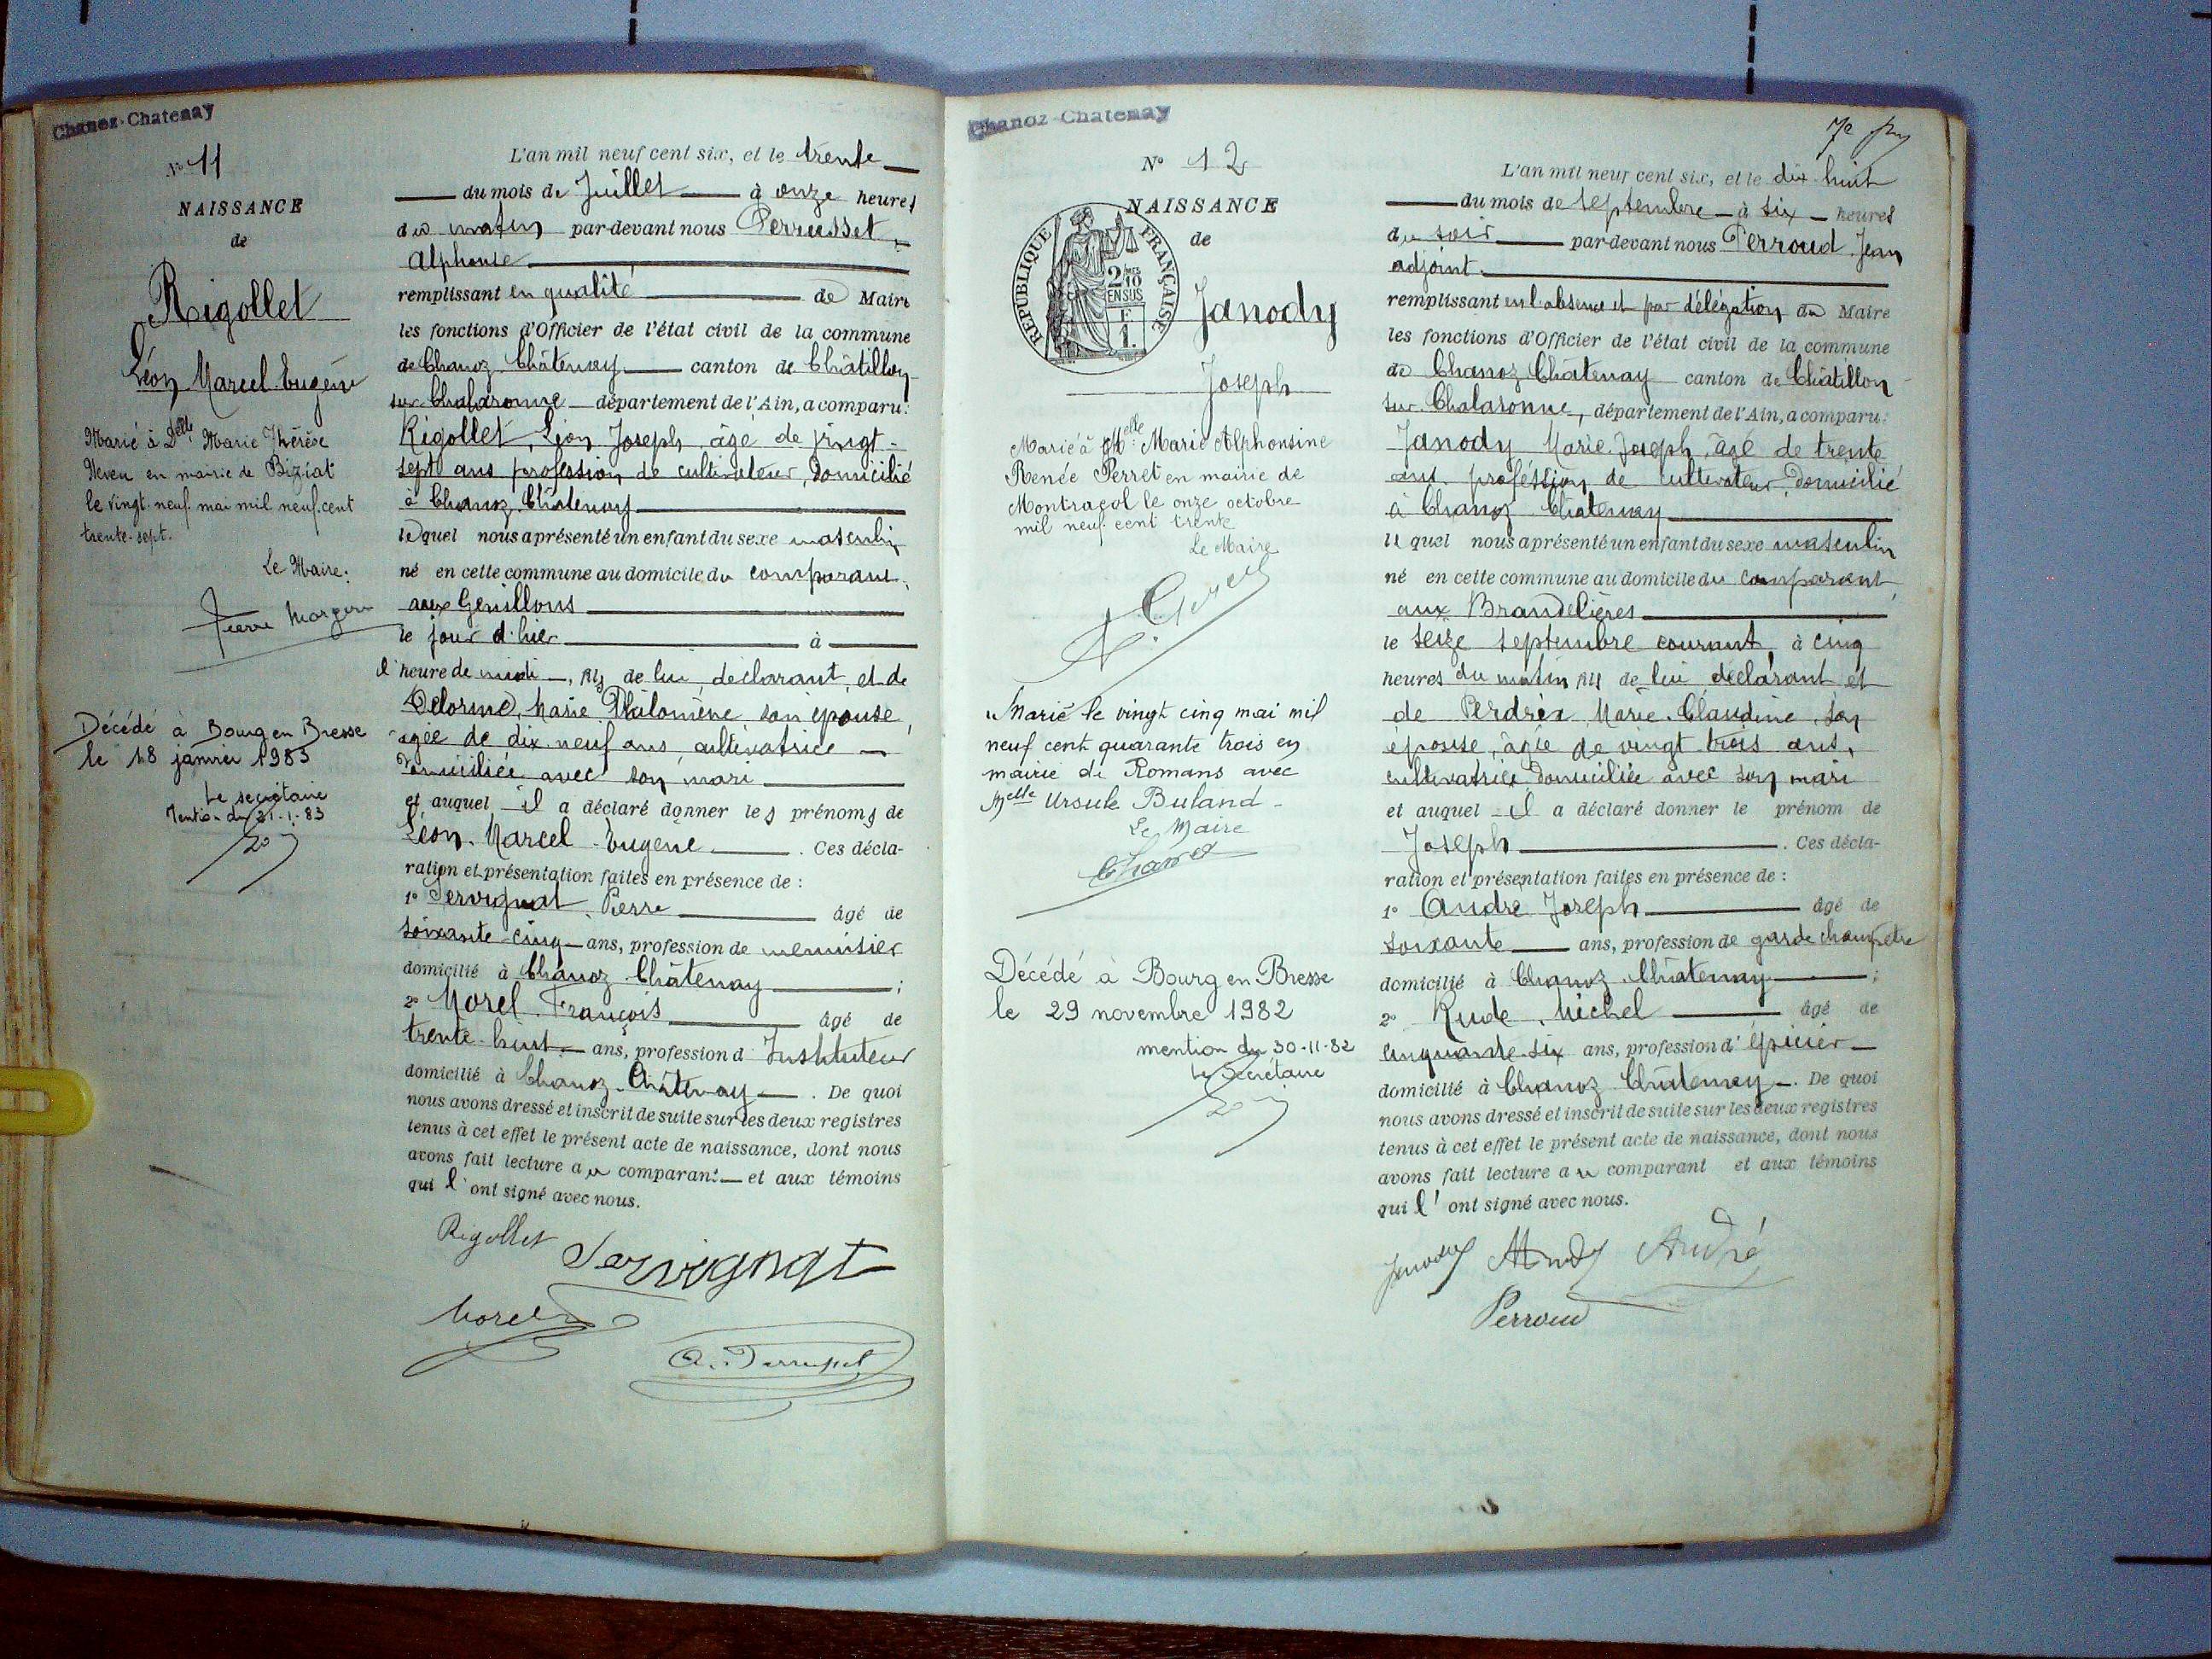 Chanoz-Chatenay
N° 11
NAISSANCE
de
Rigollet
Léon Marcel Eugène
Marié à Delle Marie Thérèse
Neveu en mairie de Biziat
le vingt-neuf mai mil neuf cent
trente-sept.
Le Maire.
Pierre
Décédé à Bourg en Bresse
le 18 janvier 1983
Le secrétaire
Mention du 21-1-83
L'an mil neuf cent six, et le trente
du mois de Juillet à onze heures
du matin par-devant nous Perrusset
Alphonse
remplissant en qualité de Maire
les fonctions d'Officier de l'état civil de la commune
de Chanoz Châtenay canton de Châtillon
sur Chalaronne département de l'Ain, a comparu:
Rigollet, Léon Joseph, âgé de vingt-
sept ans profession de cultivateur, domicilié
à Chanoz Châtenay
lequel nous a présenté un enfant du sexe masculin
né en cette commune au domicile du comparant,
aux Genillons
le jour d'hier à
l'heure de midi, fils de lui, déclarant, et de
Delorme, Marie Philomène son épouse,
âgée de dix neuf ans, cultivatrice
domiciliée avec son mari
et auquel il a déclaré donner les prénoms de
Léon Marcel Eugène. Ces décla-
ration et présentation faites en présence de :
1° Servignat, Pierre âgé de
soixante-cinq ans, profession de menuisier
domicilié à Chanoz Châtenay ;
2° Morel François âgé de
trente-huit ans, profession d Instituteur
domicilié à Chanoz-Châtenay. De quoi
nous avons dressé et inscrit de suite sur les deux registres
tenus à cet effet le présent acte de naissance, dont nous
avons fait lecture au comparant et aux témoins
qui l'ont signé avec nous.
Rigollet Servignat
Morel
A. Perrusset
Chanoz-Chatenay
N° 12
NAISSANCE
de
RÉPUBLIQUE FRANÇAISE
2/10
EN SUS
F
1.
Janody
Joseph
Marié à Melle Marie Alphonsine
Renée Perret en mairie de
Montracol le onze octobre
mil neuf cent trente
Le Maire
Marié le vingt cinq mai mil
neuf cent quarante trois en
mairie de Romans avec
Melle Ursule Buland
Le Maire
Décédé à Bourg en Bresse
le 29 novembre 1982
mention du 30-11-82
Le Secrétaire
L'an mil neuf cent six, et le dix huit
du mois de septembre à six heures
du soir par-devant nous Perroud Jean
adjoint
remplissant en l'absence et par délégation du Maire
les fonctions d'Officier de l'état civil de la commune
de Chanoz Châtenay canton de Châtillon
sur Chalaronne, département de l'Ain, a comparu:
Janody Marie Joseph, âgé de trente
ans profession de cultivateur, domicilié
à Chanoz Châtenay
lequel nous a présenté un enfant du sexe masculin
né en cette commune au domicile du comparant,
aux Brandelières
le seize septembre courant, à cinq
heures du matin fils de lui déclarant et
de Perdrix Marie Claudine, son
épouse, âgée de vingt trois ans,
cultivatrice domiciliée avec son mari
et auquel il a déclaré donner le prénom de
Joseph. Ces décla-
ration et présentation faites en présence de :
1° André Joseph âgé de
soixante ans, profession de garde champêtre
domicilié à Chanoz Châtenay ;
2° Rude, Michel âgé de
cinquante-six ans, profession d'épicier
domicilié à Chanoz Châtenay. De quoi
nous avons dressé et inscrit de suite sur les deux registres
tenus à cet effet le présent acte de naissance, dont nous
avons fait lecture au comparant et aux témoins
qui l'ont signé avec nous.
Janody André
Perroud